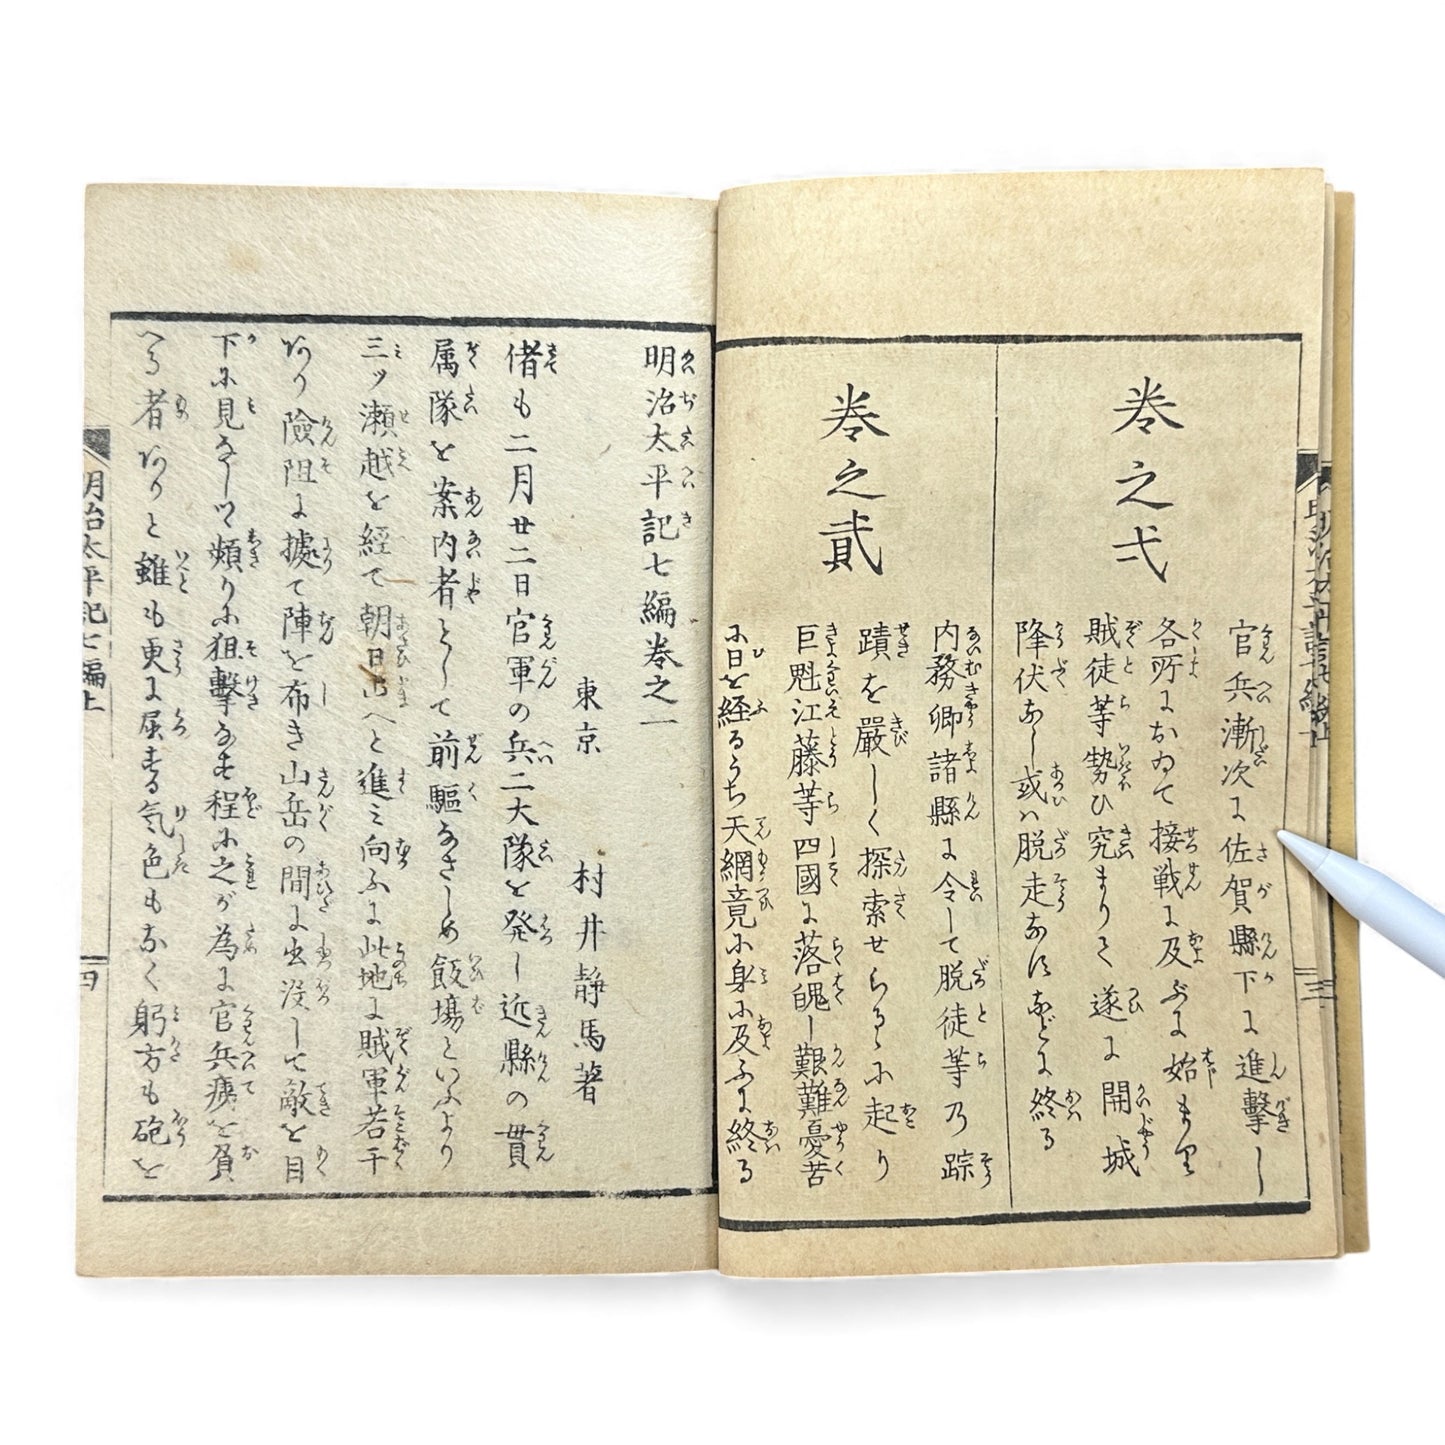 巻之弍
官兵漸次に佐賀縣下に進撃し
各所におゐて接戦に及ぶに始まり
賊徒等勢ひ究まりて遂に開城
降伏なし或は脱走なすなどに終る
巻之貳
内務卿諸縣に令して脱徒等乃踪
蹟を嚴しく探索せらるゝに起り
巨魁江藤等四國に落魄し艱難憂苦
に日を経るうち天網竟に身に及ぶに終る
明治太平記七編巻之一
東京
村井静馬著
偖も二月廿二日官軍の兵二大隊を発し近縣の貫
属隊を案内者として前驅なさしめ飯塲といふより
三ツ瀬越を経て朝日山へと進み向ふに此地に賊軍若干
ありて險阻に據て陣を布き山岳の間に出没して敵を目
下に見なしつ頻りに狙撃なす程に之が為に官兵痍を負
へる者ありと雖も更に屈する気色もなく躬方も砲を
明治太平記七編上
四